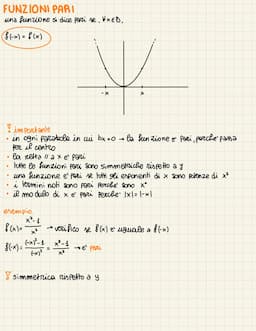 FUNZIONI PARI
una funzione si dice pari se, ∀x∈D,
f(-x) = f(x)
-x x
importante
• in ogni parabola in cui bx=0 → la funzione e' pari, perche' passa
per il centro
• la retta // a x e' pari
• tutte le funzioni pari sono simmetriche rispetto a y
• una funzione e' pari se tutti gli esponenti di x sono potenze di x²
• i termini noti sono pari perche' x⁰
• il modulo di x e' pari perche' |x|=|-x|
esempio
f(x)= x²-1/x² → verifico se f(x) e' uguale a f(-x)
f(-x)= (-x)²-1/(-x)² = x²-1/x² → e' pari
simmetrica rispetto a y